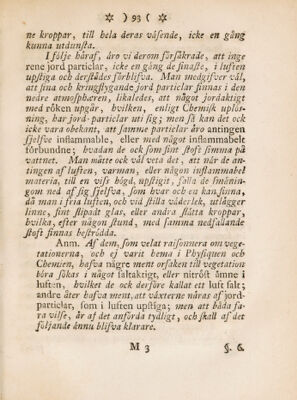 ✲ ) 93 ( ✲
ne kroppar, til hela deras väsende, icke en gång
kunna utdunsta.
I följe häraf, äro vi derom försäkrade, att inge
rene jord particlar, icke en gång de finaste, i luften
upstiga och derstädes förblifva. Man medgifver väl,
att fina och kringflygande jord particlar finnas i den
nedre atmosphæren, likaledes, att något jordaktigt
med röken upgår, hvilken, enligt Chemisk uplös-
ning, har jord-particlar uti sig; men så kan det ock
icke vara obekant, att samme particlar äro antingen
sjelfve inflammable, eller med något inflammabelt
förbundne; hvadan de ock som fint stoft simma på
vattnet. Man måtte ock väl veta det, att när de an-
tingen af luften, varman, eller någon inflammabel
materia, til en viss högd, upstigit, falla de småning-
om ned af sig sjelfva, som hvar och en kan finna,
då man i fria luften, och vid stilla väderlek, utlägger
linne, fint slipadt glas, eller andra slätta kroppar,
hvilka, efter någon stund, med samma nedfallande
stoft finnas beströdda.
Anm. Af dem, som velat raisonnera om vege-
tationerna, och ej varit hema i Physiquen och
Chemien, hafva någre ment orsaken til vegetation
böra sökas i något saltaktigt, eller nitröst ämne i
luften, hvilket de ock derföre kallat ett luft salt;
andre åter hafva ment, att växterne näras af jord-
particlar, som i luften upstiga; men att båda fa-
ra vilse, är af det anförda tydligt, och skall af det
följande ännu blifva klarare.
M 3 §. 6.